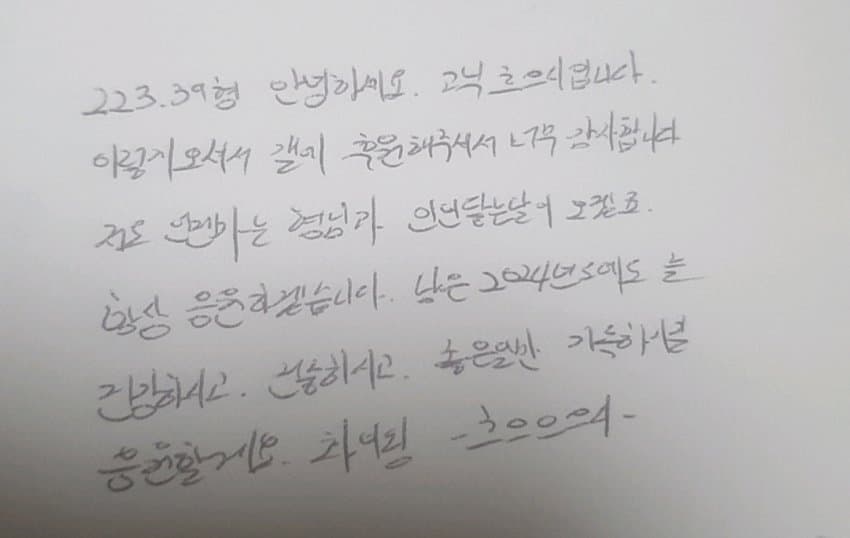 223.39형 안녕하세요. 고닉 흐으의입니다.
이렇게 오셔서 같이 후원해주셔서 너무 감사합니다
저도 언젠가는 형님과 인연닿는날이 오겠죠.
항상 응원하겠습니다. 남은 2024년도에도 늘
건강하시고. 건승하시고. 좋은일만 가득하시길
응원할게요. 화이팅 -흐으으의-